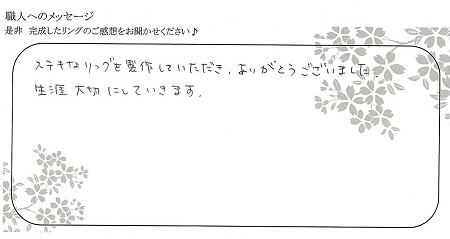 職人へのメッセージ
是非 完成したリングのご感想をお聞かせください♪
ステキなリングを製作していただき、ありがとうございました。
生涯大切にしていきます。